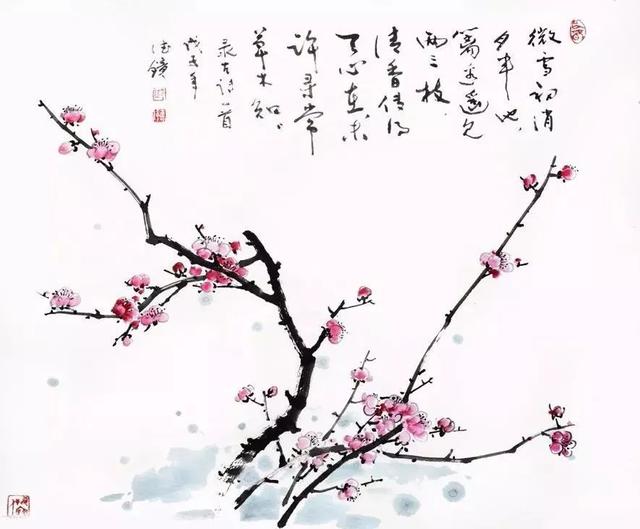 微雪初消
月半池
篱边遥见
两三枝
清香传得
天心在未
许寻常
草木知
录古诗一首